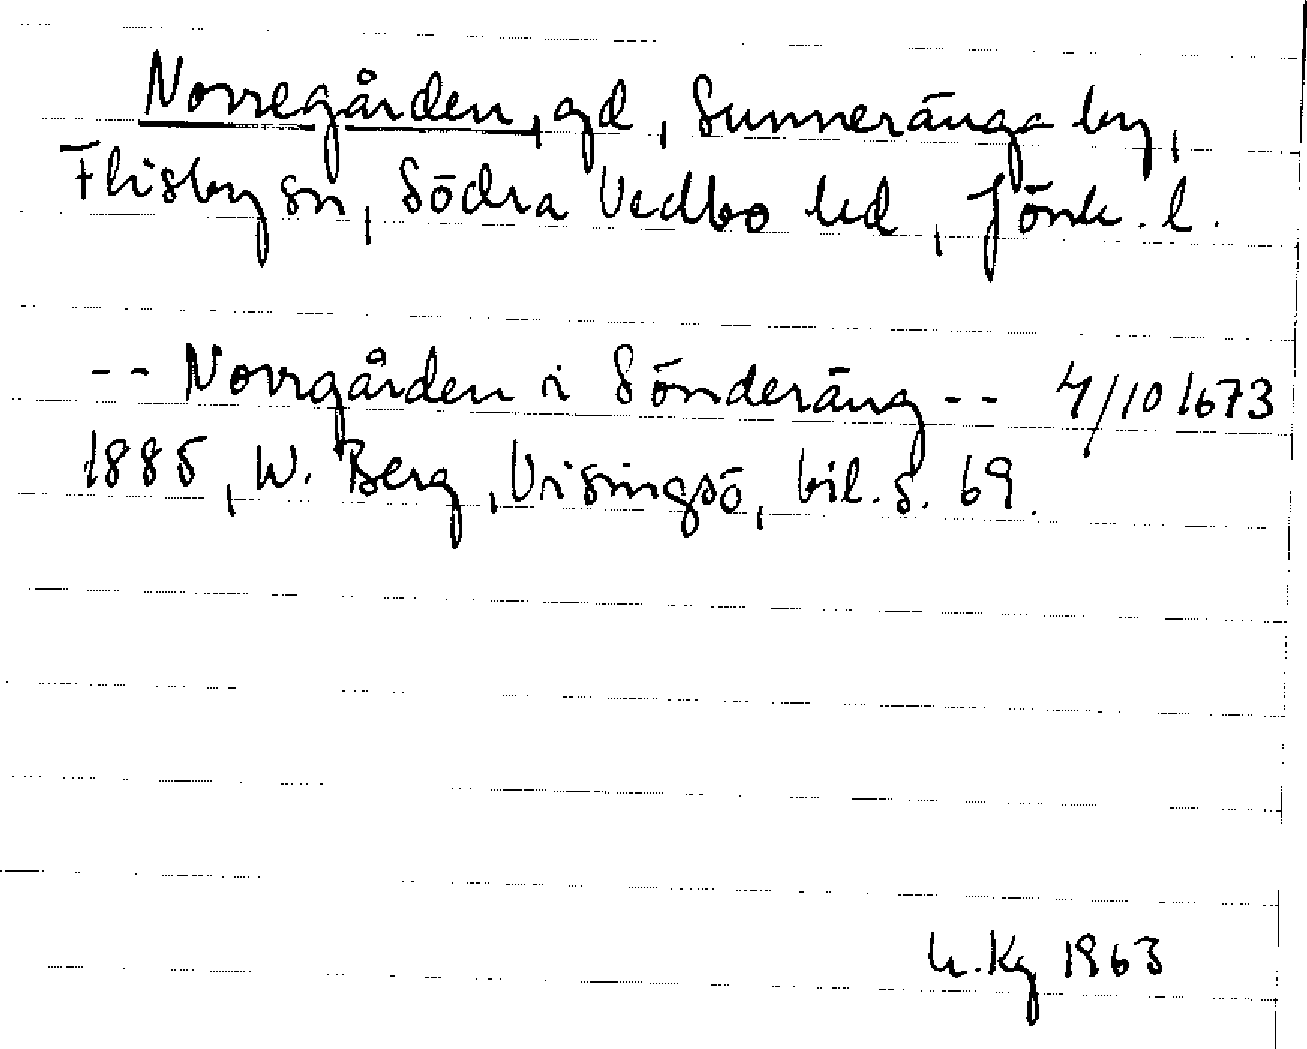 Norregården, gd, Sunneränga by,
Flisby sn, Södra Vedbo hd, Jönk. l.
-- Norrgården i Sönderäng -- 4/10 1673
1885, W. Berg, Visingsö, bil. s. 69.
h. Kg 1963